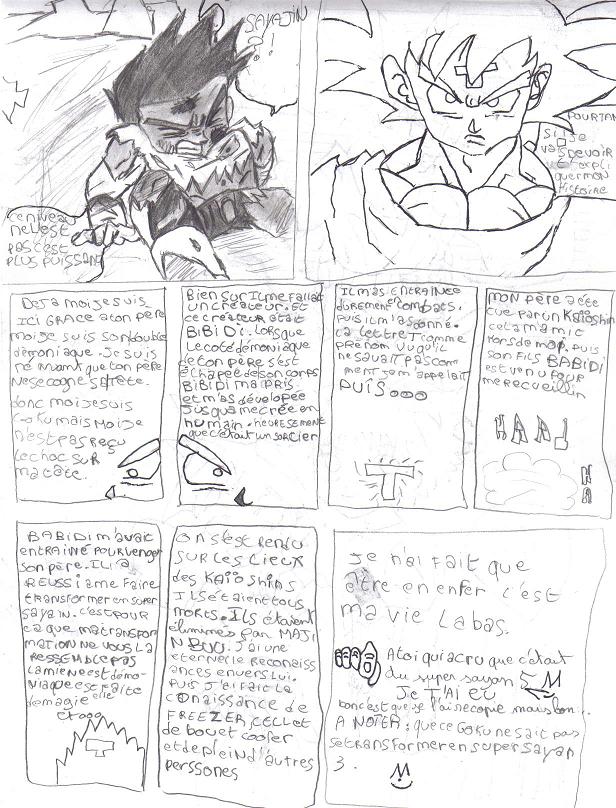 SAYAJIN
?!
ce niveau
ne l'est
pas c'est
plus puissant
POURTAN
si je
vas devoir
t'expli
quer mon
histoire
Deja moi je suis
ici grace a ton père
moi je suis son double
démoniaque. Je suis
né avant que ton père
ne se cogne sa tete.
donc moi je suis
Goku mais moi je
n'est pas reçu
le choc sur
ma tâte.
Bien sur il me fallait
un createur. Et
ce createur était
BiBiDi. Lorsque
le coté démoniaque
de ton père s'est
échapée de son corps
BiBiDi m'a pris
et m'as dévelopée
jusqu'a me crée en
humain. heuresement
que c'était un sorcier
Il m'as entrainée
durement en combats.
puis il m'as donné
ça lettre T comme
prénom vu qu'il
ne savait pas com
ment j'em'appelait
PUIS...
MON père a été
tué par un Kaioshin
cela m'a mic
hors de moi. puis
son fils BABIDI
est venu pour
me recueillir
HAA!
HA
T
BABIDI m'avait
entrainé pour venger
son père. Il a
REUSSI a me faire
transformer en super
sayan. c'est pour
ça que ma transfor
mation ne vous la
ressemble pas
la mienne est démo-
niaque est faite
de magie elle
et ooo
On s'est rendu
sur les lieux
des Kaioshins
Ils étaient tous
morts. Ils étaient
élimines par MAJI
N BUU. J'ai une
éternelle reconaiss
ances envers lui.
Puis j'ai fait la
conaissance de
FREEZER, CELL et
de bou et cooler
et de plein d'autres
perssones
Je n'ai fait que
être en enfer c'est
ma vie labas.
A toi qui a cru que c'était
du super sayan 5
Je T'AI EU
bon c'est que je l'ai recopié mais bon...
A NOTER : que ce Goku ne sait pas
se transformer en super Sayan
3.